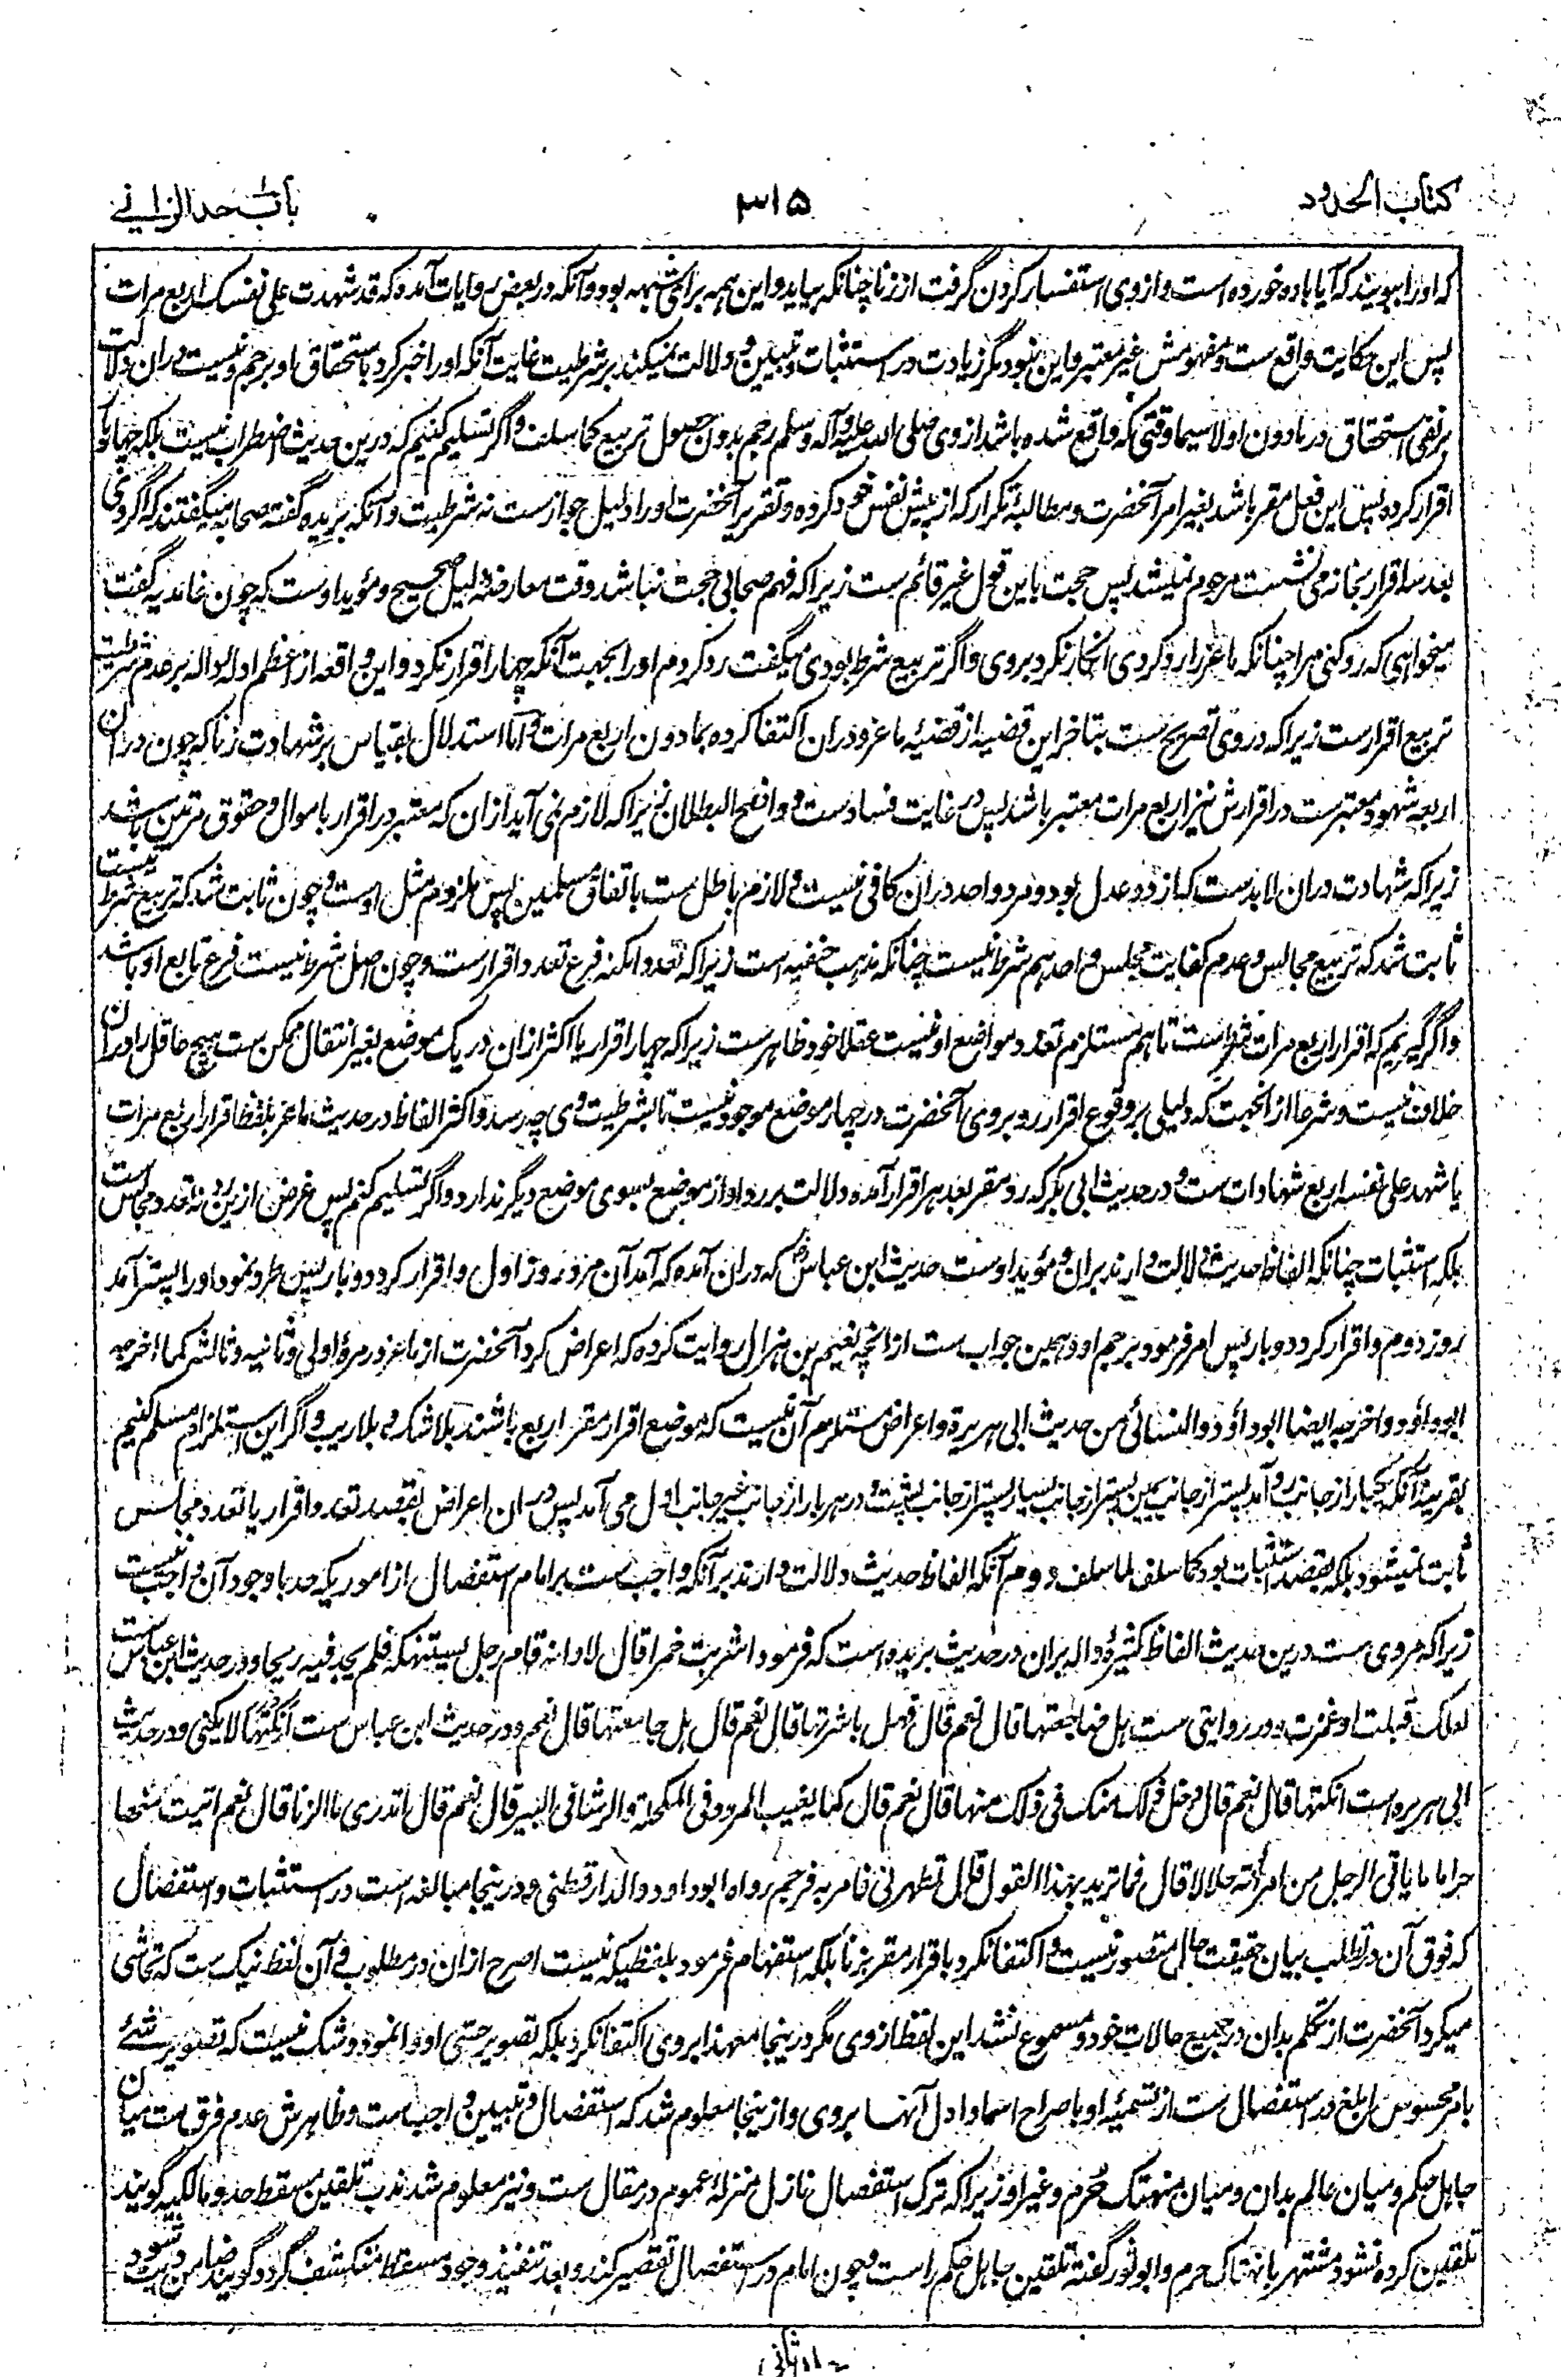 کتاب الحدود
۳۱۵
باب حد الزانی
که اورا ببویند که آیا باده خورده است و از وی استفسار کردن گرفت از زنا چنانکه بیاید و این همه برای شبهه بود و آنکه در بعض روایات آمده که قد شهدت علی نفسک اربع مرات
پس این حکایت واقع ست و مفهومش غیر معتبر و این نبود مگر زیادت در استثبات و تبیین و دلالت نمیکند بر شرطیت غایت آنکه اورا خبر کرد باستحقاق او برجم و نیست دران دلالت
بر نفی استحقاق در مادون اولا سیما وقتی که واقع شده باشد از وی صلی الله علیه و آله وسلم رجم بدون حصول تربیع کما سلف و اگر تسلیم کنیم که درین حدیث اضطراب نیست بلکه چهار بار
اقرار کرده پس این فعل مقر باشد بغیر امر آنحضرت و مطالبهٔ تکرار که از پیش نفس خود کرده و تقریر آنحضرت اورا دلیل جواز ست نه شرطیت و آنکه بریده گفته صحابه میگفتند که اگر وی
بعد سه اقرار بخانه می نشست مرجوم نمیشد پس حجت باین قول غیر قائم ست زیرا که فهم صحابی حجت نباشد وقت معارضهٔ دلیل صحیح و مؤید اوست که چون غامدیه گفت
میخواهی که رد کنی مرا چنانکه ماعز را رد کردی انکار نکرد بروی و اگر تربیع شرط بودی میگفت رد کردم اورا بجهت آنکه چهار اقرار نکرد و این واقعه از اعظم ادله دواله بر عدم شرطیت
تربیع اقرار ست زیرا که در وی تصریح ست بتاخر این قضیه از قضیهٔ ماعز و دران اکتفا کرده بمادون اربع مرات و اما استدلال بقیاس بر شهادت زنا که چون دران
اربعه شهود معتبر ست در اقرارش نیز اربع مرات معتبر باشد پس در غایت فساد ست و واضح البطلان زیرا که لازم می آید ازان که معتبر در اقرار باموال و حقوق مرتین باشد
زیرا که شهادت دران لابدست که از دو عدل بود و مرد واحد دران کافی نیست و لازم باطل ست باتفاق مسلمین پس ملزوم مثل اوست و چون ثابت شد که تربیع شرط نیست
ثابت شد که تربیع مجالس و عدم کفایت مجلس واحد هم شرط نیست چنانکه مذهب حنفیه است زیرا که تعدد امکنه فرع تعدد اقرار ست و چون اصل شرط نیست فرع تابع او باشد
و اگر گیریم که اقرار اربع مرات شرط ست تا هم مستلزم تعدد مواضع او نیست عقلا خود ظاهر ست زیرا که چهار اقرار یا اکثر ازان در یک موضع بغیر انتقال ممکن ست هیچ عاقل را دران
خلاف نیست و شرعا از انجهت که دلیلی بر وقوع اقرار روبروی آنحضرت در چهار موضع موجود نیست تا بشرطیت وی چه رسد و اکثر الفاظ در حدیث ماعز بلفظ اقرار اربع مرات
یا شهد علی نفسه اربع شهادات ست و در حدیث ابی بکر که رد مقر بعد هر اقرار آمده دلالت بر رد او از موضع بسوی موضع دیگر ندارد و اگر تسلیم کنم پس غرض ازین رد نه تعدد مجالس ست
بلکه استثبات چنانکه الفاظ حدیث دلالت دارند بران و مؤید اوست حدیث ابن عباس که دران آمده که آمد آن مرد روز اول و اقرار کرد دو بار پس طرد نمود اورا پستر آمد
روز دوم و اقرار کرد دو بار پس امر فرمود برجم او و همین جواب ست از انچه نعیم بن هزال روایت کرده که اعراض کرد آنحضرت از ماعز در مرهٔ اولی و ثانیه و ثالثه کما اخرجه
ابو داؤد و اخرجه ایضا ابو داؤد والنسائی من حدیث ابی هریرة و اعراض مستلزم آن نیست که موضع اقرار مقر اربع باشند بلا شک و بلا ریب و اگر این استلزام مسلم کنیم
بقرینهٔ آنکه یکبار از جانب رو آمد پستر از جانب یمین پستر از جانب یسار پستر از جانب پشت و در هر بار از جانب غیر جانب اول می آمد پس دران اعراض بقصد تعدد اقرار یا تعدد مجالس
ثابت نمیشود بلکه بقصد استثبات بود کما سلف لما سلف دوم آنکه الفاظ حدیث دلالت دارند بر آنکه واجب ست بر امام استفصال از اموریکه حد با وجود آن واجب نیست
زیرا که مروی ست درین حدیث الفاظ کثیرهٔ دواله بران در حدیث بریده است که فرمود اشربت خمرا قال لا و انه قام رجل یستنهکه فلم یجد فیه ریحا و در حدیث ابن عباس ست
لعلک قبلت او غمزت و در روایتی ست هل ضاجعتها قال نعم قال فهل باشرتها قال نعم قال هل جامعتها قال نعم و در حدیث ابن عباس ست انکتها لا یکنی و در حدیث
ابی هریره است انکتها قال نعم قال دخل ذلک منک فی ذلک منها قال نعم قال کما یغیب المرود فی المکحلة والرشا فی البیر قال نعم قال اتدری ما الزنا قال نعم اتیت منها
حراما ما یاتی الرجل من امرأته حلالا قال فما ترید بهذا القول قال تطهرنی فامر به فرجم رواه ابو داود والدارقطنی و درینجا مبالغه است در استثبات و استفصال
که فوق آن در تطلب بیان حقیقت حال متصور نیست و اکتفا نکرد باقرار مقر بزنا بلکه استفهام فرمود بلفظیکه نیست اصرح ازان در مطلوب و آن لفظ نیک ست که تحاشی
میکرد آنحضرت از تکلم بدان در جمیع حالات خود و مسموع نشد این لفظ از وی مگر درینجا معهذا بروی اکتفا نکرد بلکه تصویر حسی او وانمود و شک نیست که تصویر شئے
بامر محسوس ابلغ در استفصال ست از تسمیهٔ او باصرح اسما و ادل آنها بروی و ازینجا معلوم شد که استفصال و تبیین واجب ست و ظاهرش عدم فرق ست میان
جاهل حکم و میان عالم بدان و میان منهتک محرم و غیر او زیرا که ترک استفصال نازل منزلهٔ عموم در مقال ست و نیز معلوم شد ندب تلقین مسقط حد و مالکیه گویند
تلقین کرده نشود مشتهر بانتهاک حرم و ابو ثور گفته تلقین جاهل حکم راست و چون امام در استفصال تقصیر کند و بعد تنفیذ وجود مسقط منکشف گردد گویند ضامن دیت شود